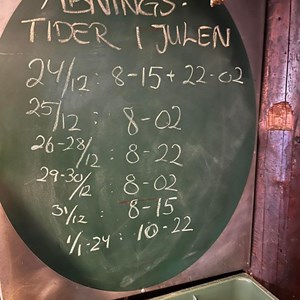 ÅBNINGS-
TIDER I JULEN
24/12: 8-15+22-02
25/12 : 8-02
26-28/12 : 8-22
29-30/12 : 8-02
31/12 : 8-15
1/1-24 : 10-22